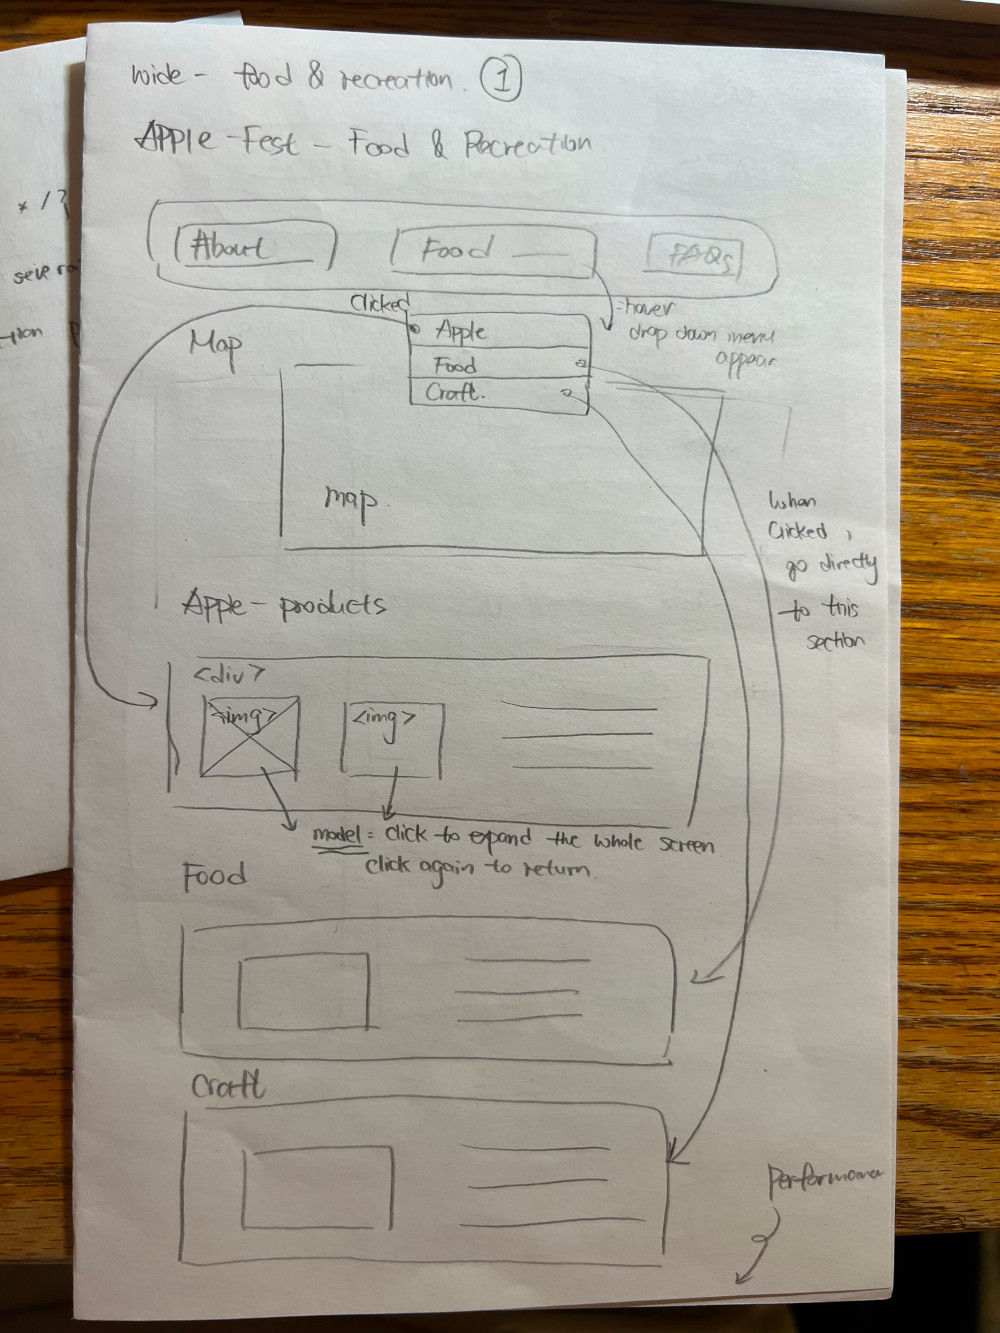 wide - food & recreation. ①
Apple-Fest - Food & Recreation
About
Food
FAQs
Clicked
-hover
drop down menu
appear
Apple
Food
Craft.
Map
map.
When
Clicked,
go directly
to this
section
Apple - products
<div>
<img>
<img>
model = click to expand the whole screen.
click again to return.
Food
Craft
* / ?
several
-tion